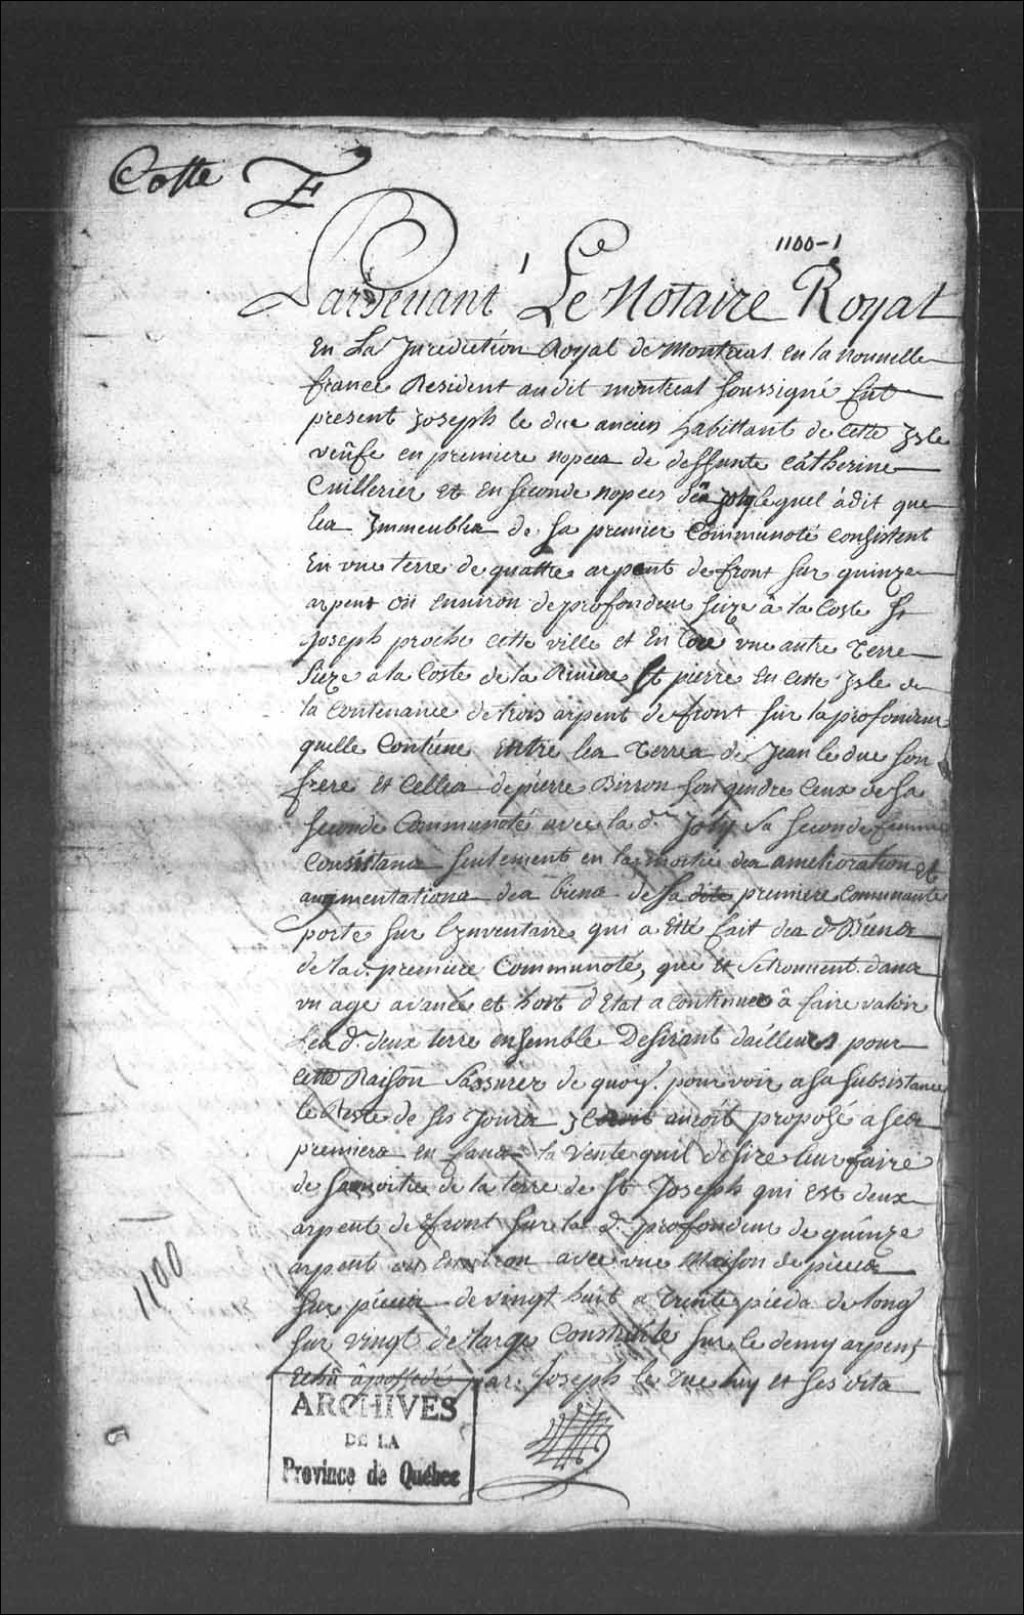 Cotte F
1100-1
Pardevant Le Notaire Royal
En La Jurediction Royal de Montreal en la nouvelle
france Resident audit montreal soussigné fut
present Joseph le duc ancien habittant de cette Isle
veufe en premiere nopces de deffunte Câtherine
Cuillerier et en seconde nopces Joly lequel âdit que
les Immeubles de sa premier Communoté consistent
En une terre de quattre arpent de front sur quinze
arpent ou environ de profondeur size â la Coste St
Joseph proche cette ville et En Core une autre Terre
size a la Coste de la Riviere St pierre En cette Isle de
la Contenance de trois arpent de front sur la profondeur
quelle Contiene entre les Terres de Jean le duc son
frere et Celles de pierre Birron son gendre Ceux de sa
seconde Communoté avec la d. Joly sa seconde femme
Consistans seulement en la moitié des amelioration et
augmentations des biens de sa dite premiere Communoté
porté sur l'Inventaire qui a Eté fait des d. Biens
de la d. premiere Communoté, que et se trouvent dans
un age avancé et hort d'Etat a continuer â faire valoir
Les d. deux terre ensemble Desirant dailleurs pour
cette Raison sassurer de quoy pourvoir a sa subsistance
le Reste de ses Jours Il auroit proposé a ses
premiers enfans la vente quil desire leur faire
de sa moitie de la terre de St Joseph qui est deux
arpent de front sur la d. profondeur de quinze
arpent ou Environ avec une Maison de pieces
sur pieces de vingt huit a trente pieds de long
sur vingt de large Construite sur le demy arpent
Echû â possedé par Joseph le Duc luy et ses
1100
ARCHIVES
DE LA
Province de Québec